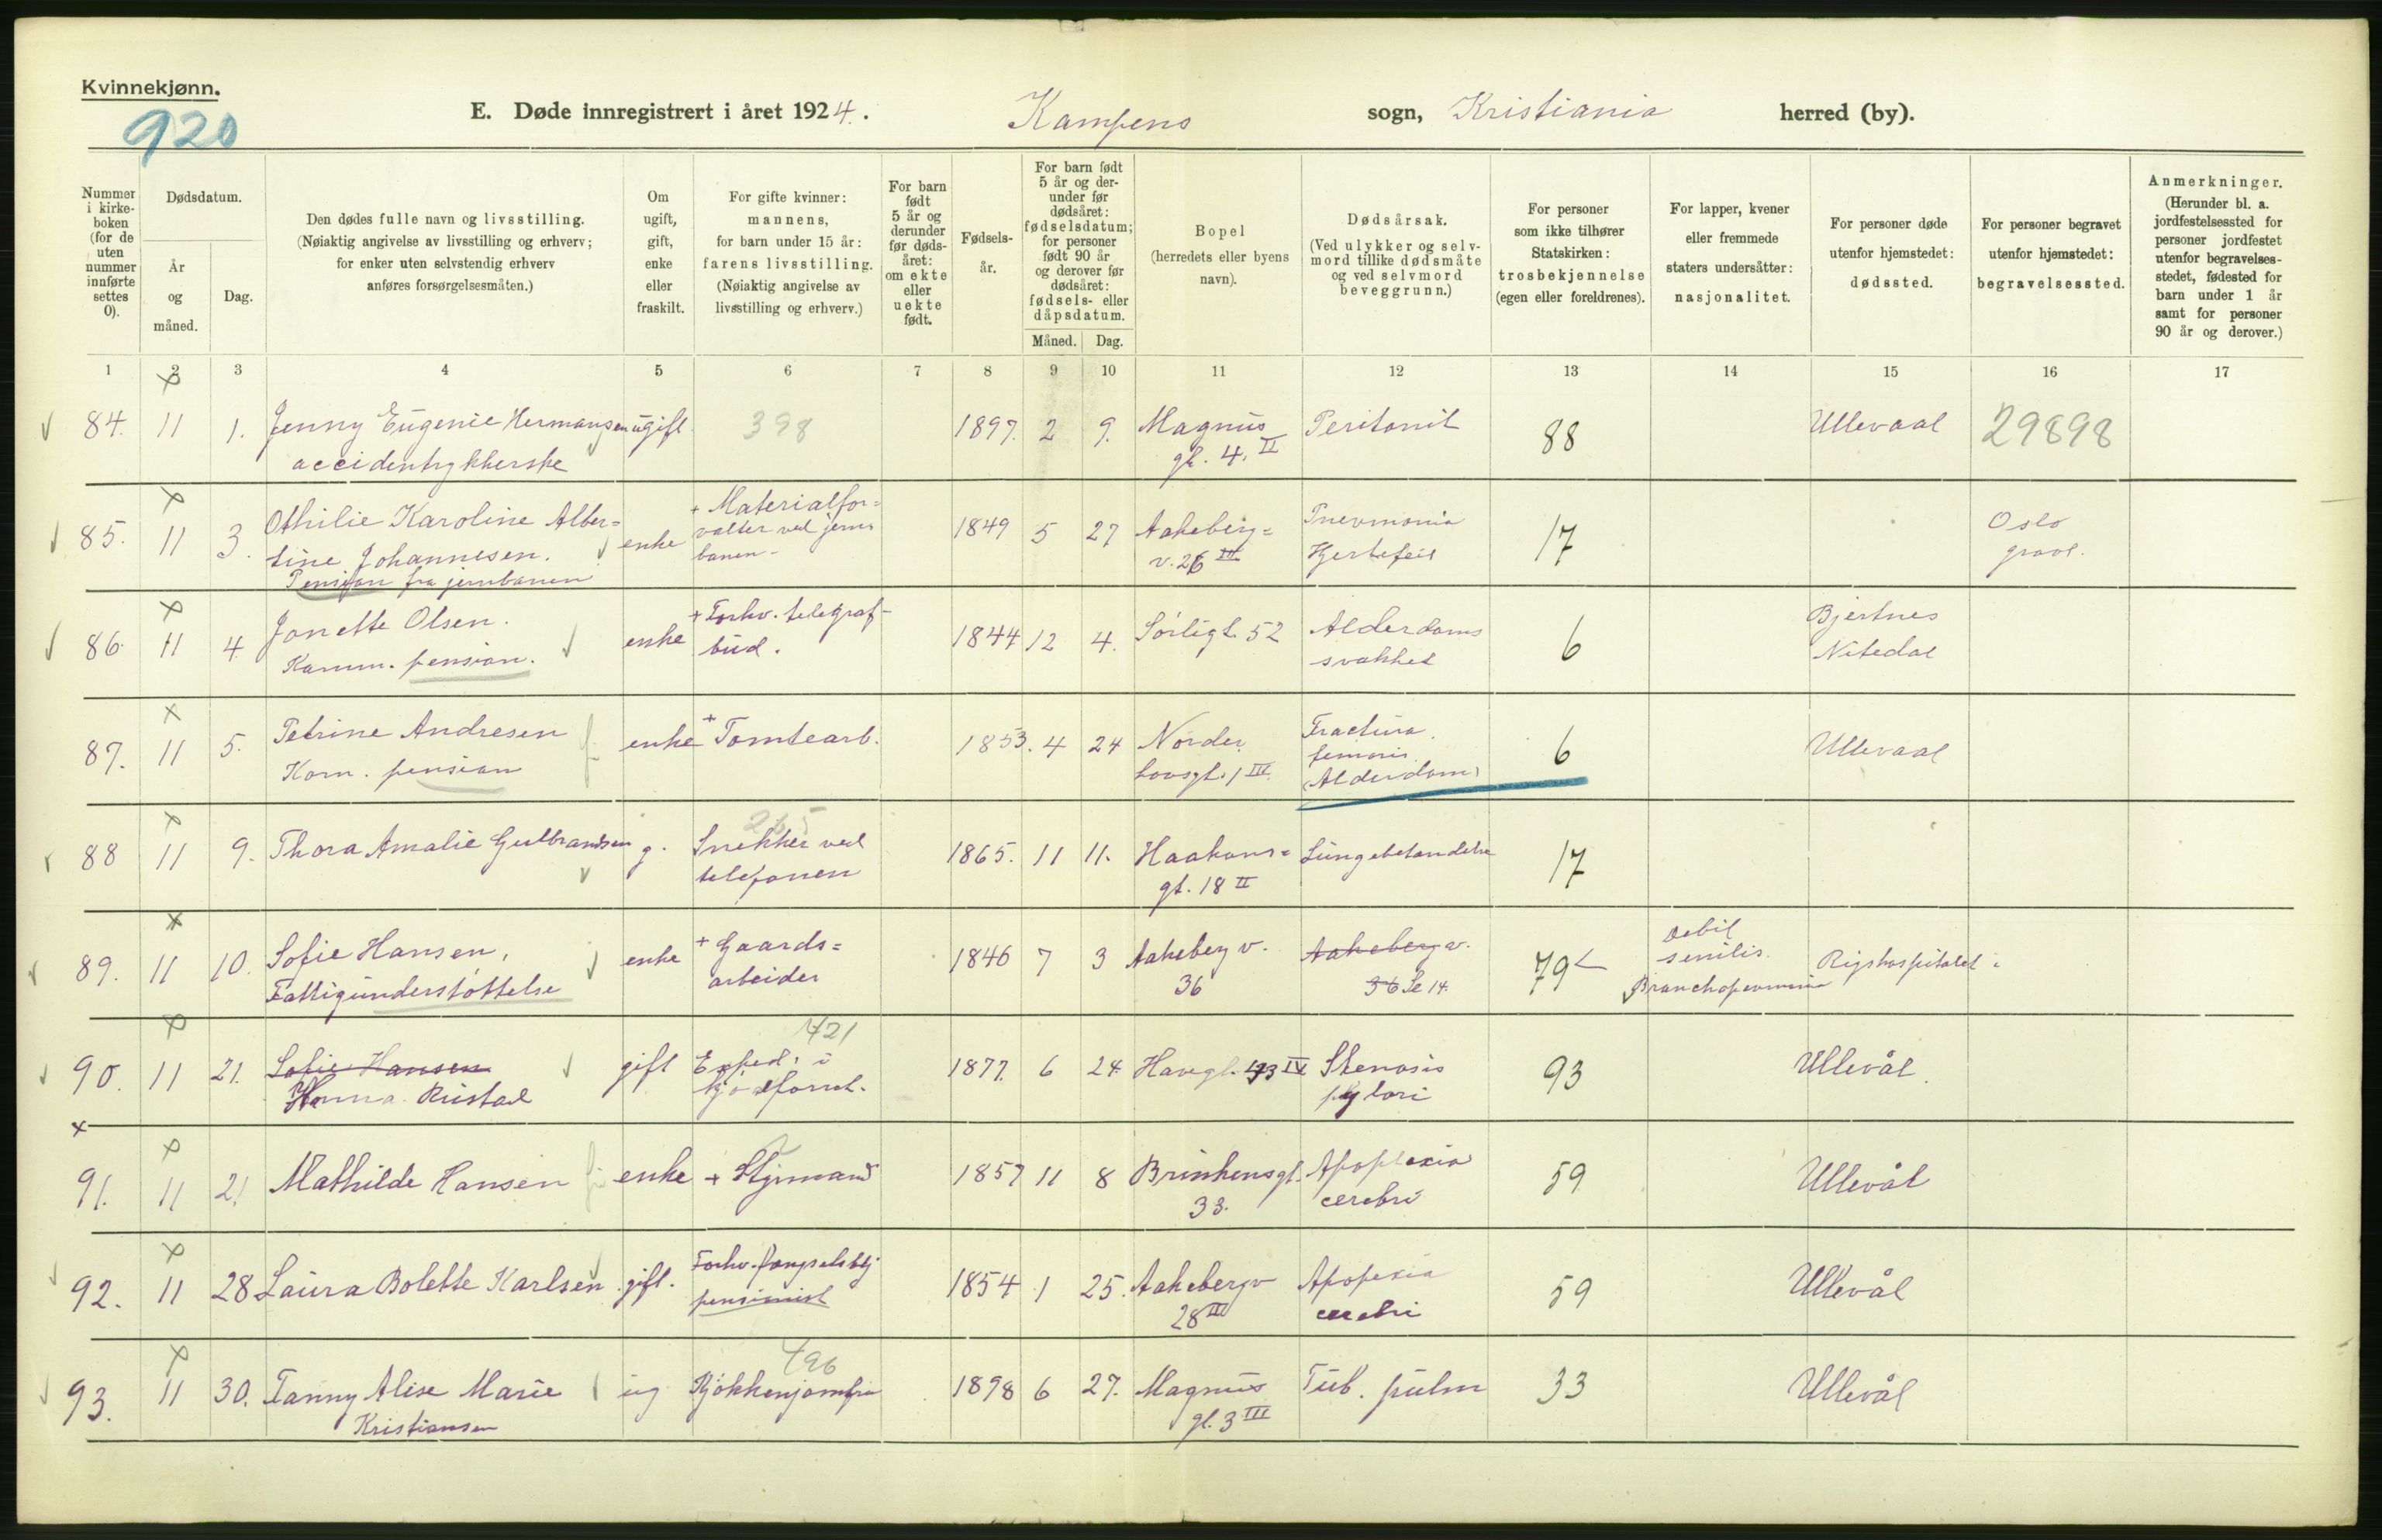 Kvinnekjønn.
920
E. Døde innregistrert i året 1924.. Kampens sogn, Kristiania herred (by).
Nummer i kirke-boken (for de uten nummer innførte settes 0).
Dødsdatum.
År og måned.
Dag.
Den dødes fulle navn og livsstilling.
(Nøiaktig angivelse av livsstilling og erhverv;
for enker uten selvstendig erhverv
anføres forsørgelsesmåten.)
Om ugift, gift, enke eller fraskilt.
For gifte kvinner:
mannens,
for barn under 15 år:
farens livsstilling.
(Nøiaktig angivelse av
livsstilling og erhverv.)
For barn født 5 år og derunder før døds-året: om ekte eller uekte født.
Fødsels-år.
For barn født 5 år og der-under før dødsåret: fødselsdatum; for personer født 90 år og derover før dødsåret: fødsels- eller dåpsdatum.
Måned. Dag.
Bopel
(herredets eller byens
navn).
Dødsårsak.
(Ved ulykker og selv-
mord tillike dødsmåte
og ved selvmord
beveggrunn.)
For personer
som ikke tilhører
Statskirken:
trosbekjennelse
(egen eller foreldrenes).
For lapper, kvener
eller fremmede
staters undersåtter:
nasjonalitet.
For personer døde
utenfor hjemstedet:
dødssted.
For personer begravet
utenfor hjemstedet:
begravelsessted.
Anmerkninger.
(Herunder bl. a.
jordfestelsessted for
personer jordfestet
utenfor begravelses-
stedet, fødested for
barn under 1 år
samt for personer
90 år og derover.)
1 2 3 4 5 6 7 8 9 10 11 12 13 14 15 16 17
84. 11 1. Jenny Eugenie Hermansen ugift 398 1897. 2 9. Magnus Peritonit 88 Ullevaal 29898
accidentrykkerske gt. 4. II
85. 11 3. Othilie Karoline Alber= enke + Materialfor= 1849 5 27 Aakeberg= Pnevmonia 17 Oslo
tine Johannesen. valter ved jern v. 26 III Hjertefeil gravl.
Pension fra jernbanen banen-
86. 11 4 Janette Olsen. enke + Forhv. telegraf- 1844 12 4. Sørligt. 52 Alderdoms 6 Bjertnes
Komm. pension. bud. svakhet Nitedal
87. 11 5. Petrine Andresen enke + Tomtearb. 1853. 4 24 Norder Fractura 6 Ullevaal
Kom. pension hovsgt. 1 III femoris.
(Alderdom)
88 11 9. Thora Amalie Gulbrandsen g. Snekker ved 1865. 11 11. Haakons= Lungebetændelse 17
telefonen gt. 18 II
89. 11 10. Sofie Hansen, enke + Gaards= 1846 7 3 Aakeberg v. Aakeberg v. 79 Debil Rigshospitalet
Fattigunderstøttelse arbeider 36 36 Se 14. senilis.
Bronchopnevmonia
421
90. 11 21. Sofie Hansen gift Exped. i 1877. 6 24. Havegt. IV Stenosis 93 Ullevål
Ristad kjødforret. pylori
91. 11 21 Mathilde Hansen enke + Styrmand 1857 11 8 Brinkensgt. Apoplexia 59 Ullevål
33. cerebri
92. 11 28 Laura Bolette Karlsen gift. Forhv. fængselsbtj 1854 1 25. Aakebergv Apopexia 59 Ullevål
pensionist 28 III cerebri
496
93. 11 30. Fanny Alise Marie ug Kjøkkenjomfru 1898 6 27. Magnus Tub. pulm 33 Ullevål
Kristiansen gt. 3 III